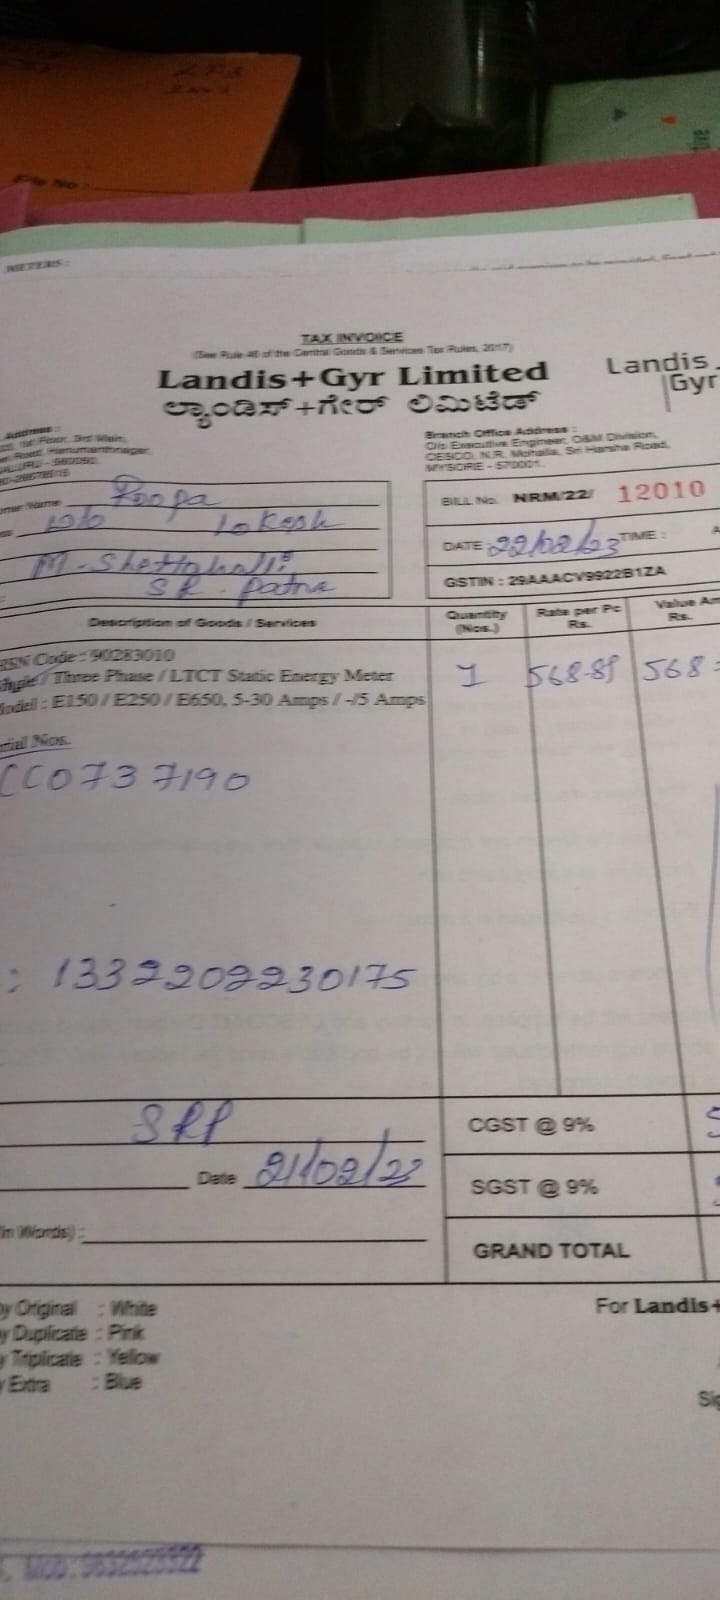 File No :
METERS :
TAX INVOICE
(See Rule 46 of the Central Goods & Services Tax Rules, 2017)
Landis+Gyr Limited
ಲ್ಯಾಂಡಿಸ್+ಗೇರ್ ಲಿಮಿಟೆಡ್
Landis
Gyr
Address :
Floor, 3rd Main,
Road, Hanumanthnagar,
Branch Office Address :
O/o Executive Engineer, O&M Division,
CESCO, N.R. Mohalla, Sri Harsha Road,
MYSORE - 570001.
Name Roopa
Lokesh
M. Shettahalli
SR. Patna
BILL No. NRM/22/ 12010
DATE : 22/02/23 TIME :
GSTIN : 29AAACV9922B1ZA
Description of Goods / Services
Quantity (Nos.)
Rate per Pc Rs.
Value Am Rs.
HSN Code : 90283010
Single / Three Phase / LTCT Static Energy Meter
Model : E150 / E250 / E650, 5-30 Amps / -/5 Amps
1 568-89 568
Serial Nos.
CC0737190
: 1332202230175
SRP
Date 21/02/23
(in Words) :
CGST @ 9%
SGST @ 9%
GRAND TOTAL
y Original : White
y Duplicate : Pink
y Triplicate : Yellow
y Extra : Blue
For Landis+
Sig
Mob: 9632525322